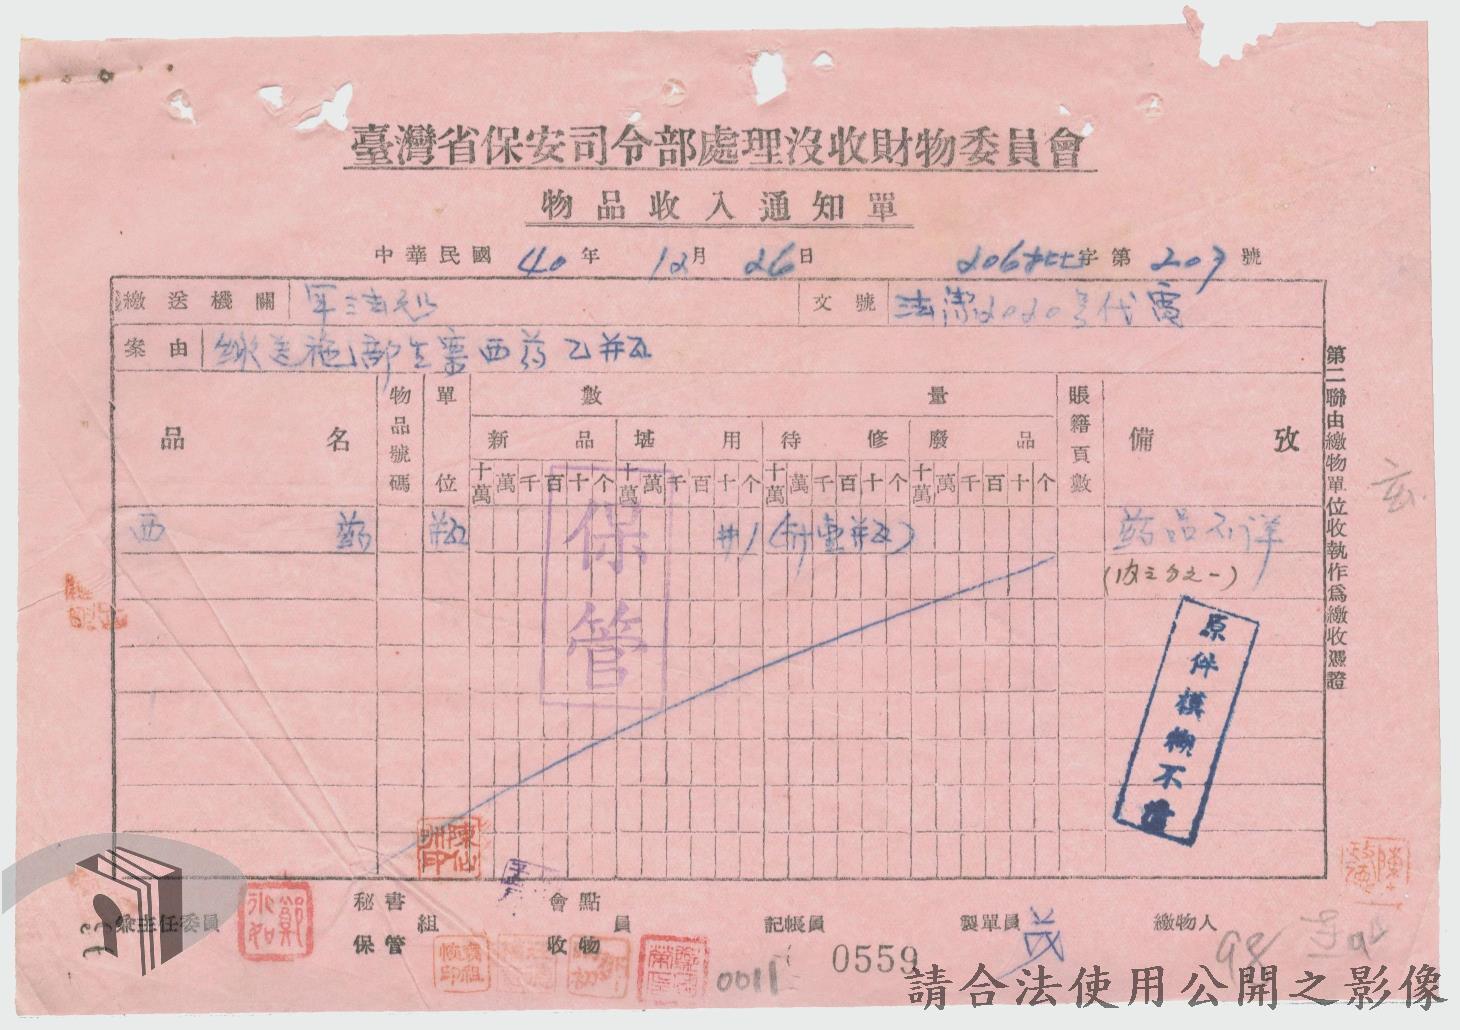 臺灣省保安司令部處理沒收財物委員會
物品收入通知單
中華民國 40年 12月 26日 字第 203 號
繳送機關 軍法処 文號 法潔2020号代電
案由 繳送施部生案西药乙瓶
品名 物品號碼 單位 數量 賬籍頁數 備攷
新品 堪用 待修 廢品
十萬 萬 千 百 十 个 十萬 萬 千 百 十 个 十萬 萬 千 百 十 个 十萬 萬 千 百 十 个
西药 瓶 #1(計壹瓶) 药品不详
(内三分之一)
保管
原件模糊不清
第二聯由繳物單位收執作爲繳收憑證
兼主任委員 鄭 秘書 保管 組 會點 收物 員 記帳員 製單員 茂 繳物人
0011 0559 98
請合法使用公開之影像